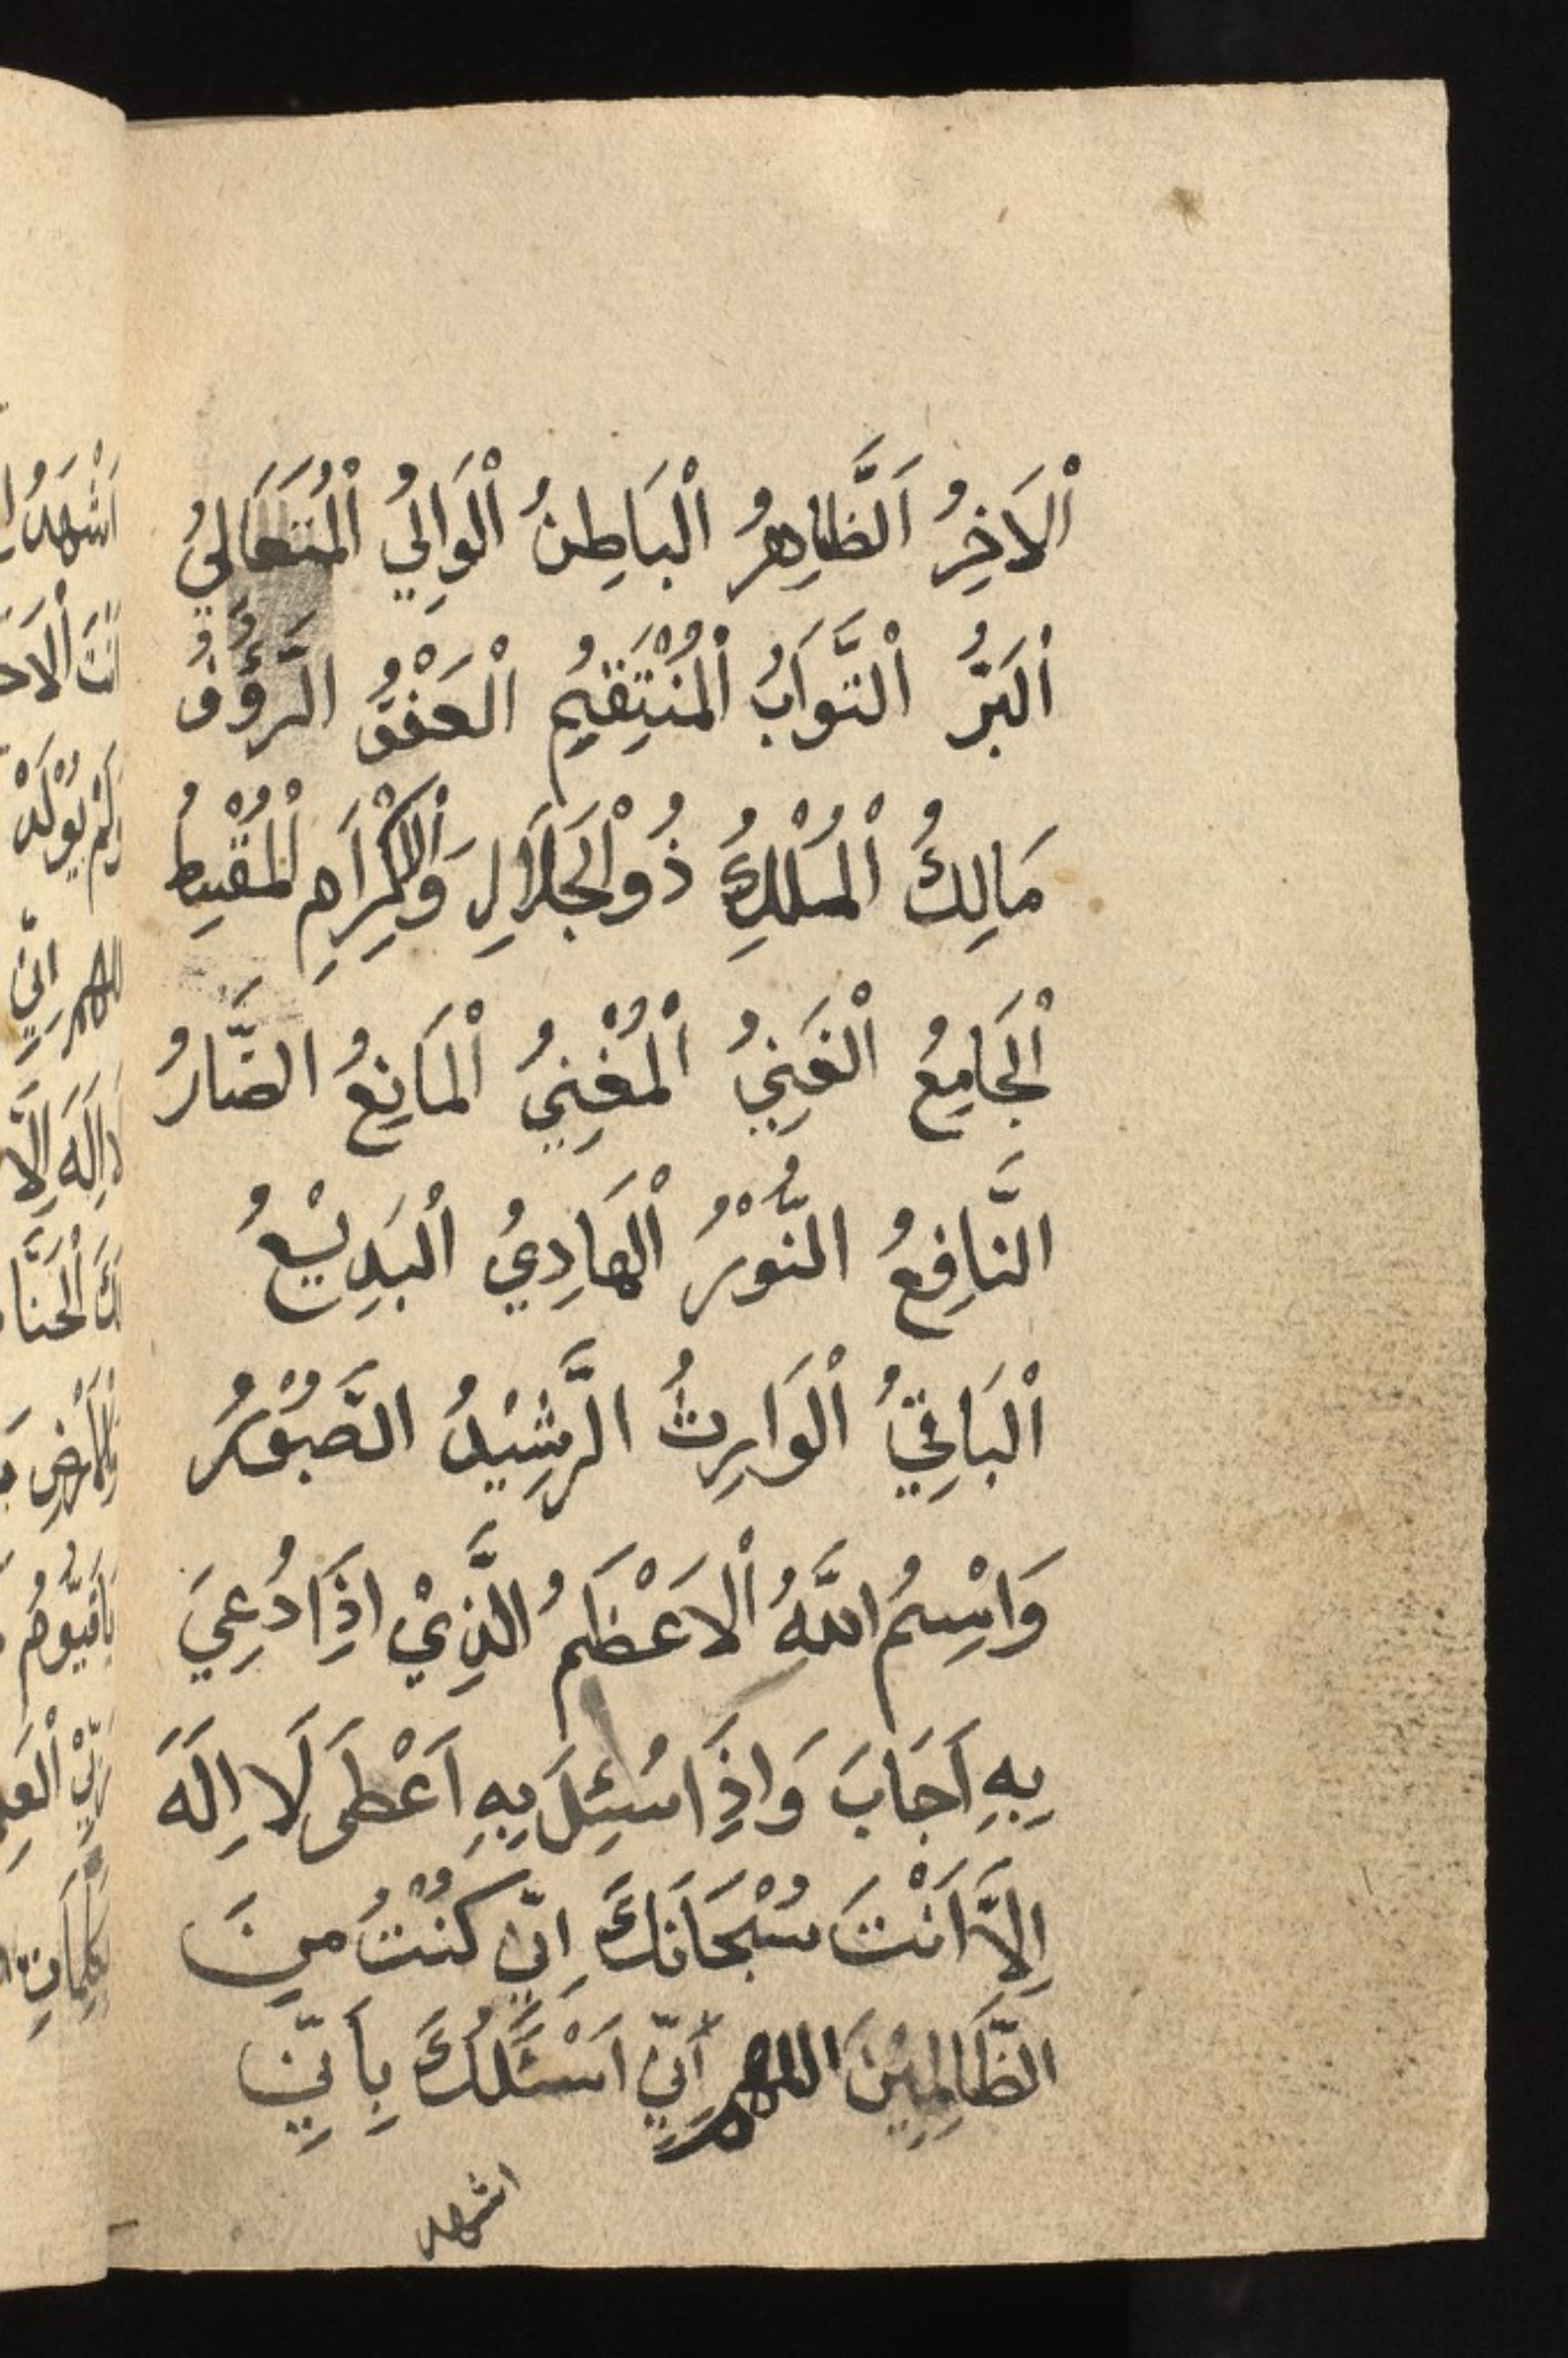 اَلْاَخِرُ اَلظَّاهِرُ اَلْبَاطِنُ اَلْوَالِيُ اَلْمُتَعَالِيُ
اَلْبَرُّ اَلتَّوَابُ اَلْمُنْتَقِيمُ اَلْعَفْوُّ الرَّؤُفُ
مَالِكُ اَلْمُلْكِ ذُواْلْجَلَالِ وَاْلاِكْرَامِ اَلْمُقْسِطُ
اَلْجَامِعُ اَلْغَنِيُ اَلْمُغْنِيُ اَلْمَانِعُ الضَّارُ
النَّافِعُ النُّوْرُ اَلْهَادِيُ اَلْبَدِيْعُ
اَلْبَاقِيُ اَلْوَارِثُ الرَّشِيْدُ الصَّبُوْرُ
وَاسْمُ اللّٰهُ اْلاَعْظَمُ الَّذِيْ اِذَا دُعِيَ
بِهِ اَجَابَ وَاِذَا سُئِلَ بِهِ اَعْطَى لَا اِلَهَ
اِلَّا اَنْتَ سُبْحَانَكَ اِنِّي كُنْتُ مِنَ
الظَّالِمِيْنَ اللهم اِنِّي اَسْئَلُكَ بِاَنِّي
اشهد
اَشْهَدُ
لَمْ يُوْلَدْ
اِنِّي